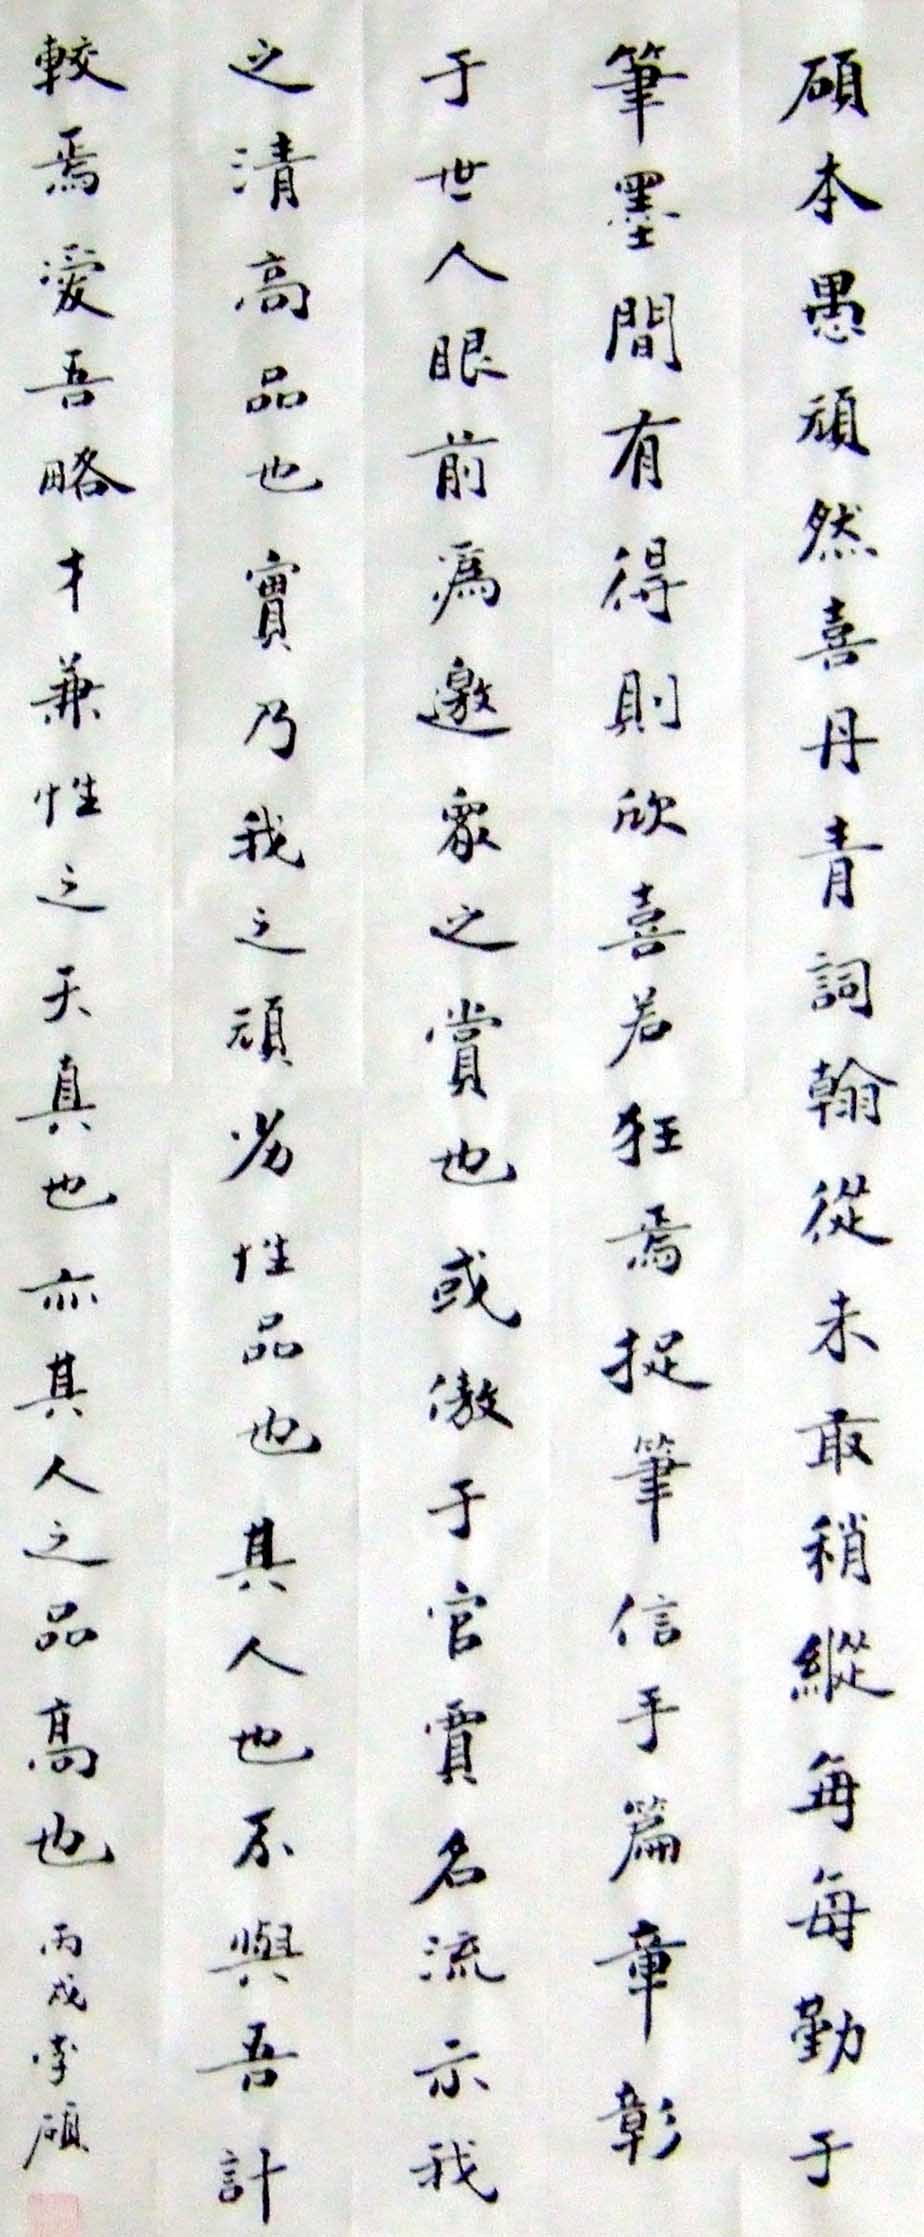 碩本愚頑然喜丹青詞翰從未敢稍縱每每勤于
筆墨間有得則欣喜若狂焉捉筆信手篇章彰
于世人眼前爲邀衆之賞也或傲于官賈名流示我
之清高品也實乃我之頑劣性品也其人也不與吾計
較焉愛吾略才兼性之天真也亦其人之品高也
丙戌李碩